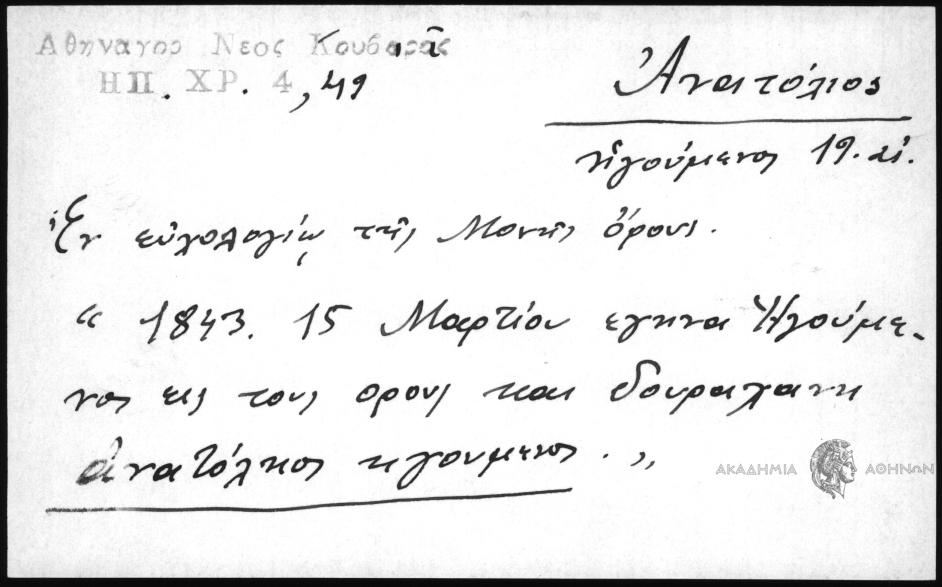 Αθηναγορ Νεος Κουβαρᾶς
ΗΠ. ΧΡ. 4, 49
Ἀνατόλιος
ἡγούμενος 19. αἰ.
Ἐν εὐχολογίῳ τῆς Μονῆς ὄρους.
“ 1843. 15 Μαρτίου εγηνα Ἡγούμε-
νος εις τους ορους και δουραχανη
ἀνατόληος ηγουμενος. „
ΑΚΑΔΗΜΙΑ ΑΘΗΝΩΝ